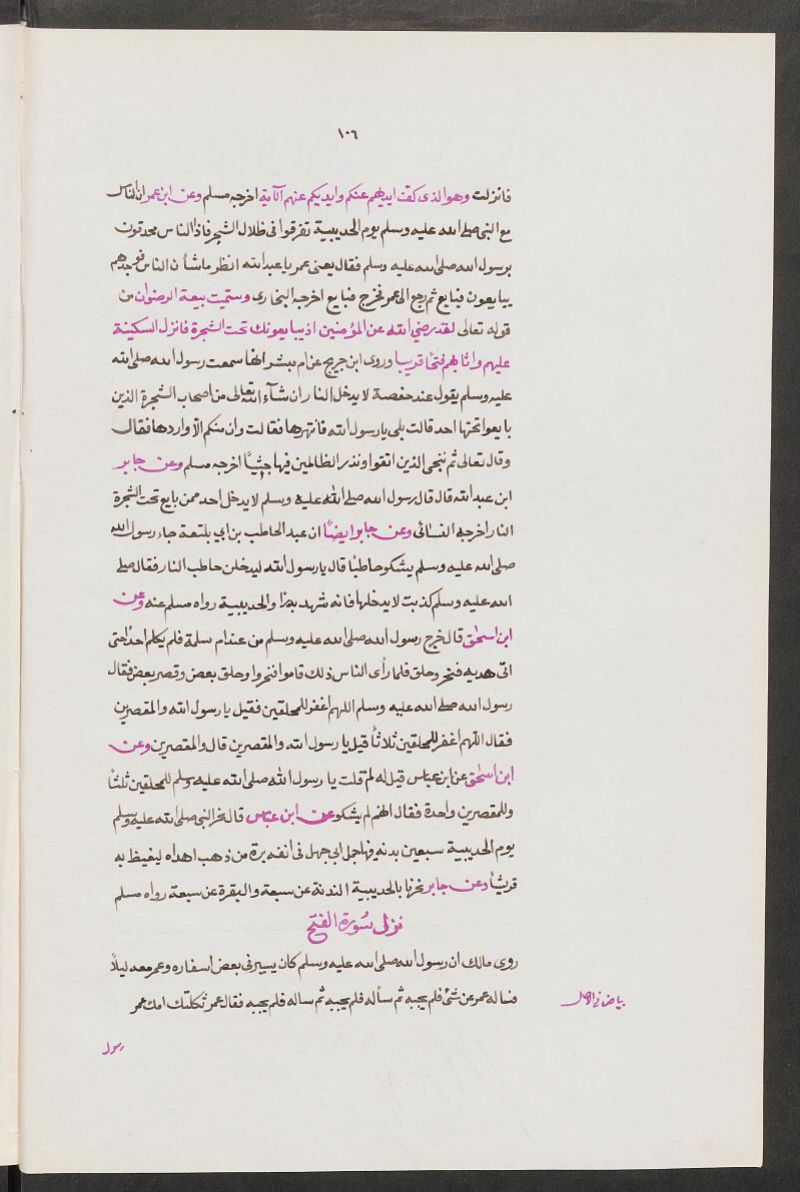 ١٠٦
فانزلت وهو الذى كف ايديهم عنكم وايديكم عنهم الآية اخرجه مسلم وعن ابن عمر ان الناس
مع النبى صلى الله عليه وسلم يوم الحديبية تفرقوا فى ظلال الشجر فاذا الناس محدقون
برسول الله صلى الله عليه وسلم فقال يعنى عمر يا عبد الله انظر ما شأن الناس فوجدهم
يبايعون فبايع ثم رجع الى عمر فخرج فبايع اخرجه البخارى وسميت بيعة الرضوان من
قوله تعالى لقد رضي الله عن المؤمنين اذ يبايعونك تحت الشجرة فانزل السكينة
عليهم واثابهم فتحا قريبا وروى ابن جريج عن ام مبشر انها سمعت رسول الله صلى الله
عليه وسلم يقول عند حفصة لا يدخل النار ان شآء الله تعالى من اصحاب الشجرة الذين
بايعوا تحتها احد قالت بلى يا رسول الله فانتهرها فقالت وان منكم الّا واردها فقال
وقال تعالى ثم ننجى الذين اتقوا ونذر الظالمين فيها جثيًّا اخرجه مسلم وعن جابر
ابن عبد الله قال قال رسول الله صلى الله عليه وسلم لا يدخل احد ممن بايع تحت الشجرة
النار اخرجه النسائى وعن جابر ايضًا ان عبد الحاطب بن ابي بلتعة جاء رسول الله
صلى الله عليه وسلم يشكو حاطبًا قال يا رسول الله ليدخلن حاطب النار فقال صلى
الله عليه وسلم كذبت لا يدخلها فانه شهد بدرًا والحديبية رواه مسلم عنه وعن
ابن اسحٰق قال خرج رسول الله صلى الله عليه وسلم من عند ام سلمة فلم يكلم احدًا حتى
اتى هديه فنحر وحلق فلما رأى الناس ذلك قاموا فنحروا وحلق بعض وقصر بعض فقال
رسول الله صلى الله عليه وسلم اللهم اغفر للمحلقين فقيل يا رسول الله والمقصرين
فقال اللهم اغفر للمحلقين ثلاثاً قيل يا رسول الله والمقصرين قال والمقصرين وعن
ابن اسحٰق عن ابن عباس قيل له لم قلت يا رسول الله صلى الله عليه وسلم للمحلقين ثلثاً
وللمقصرين واحدة فقال انهم لم يشكو عن ابن عباس قال نحر النبى صلى الله عليه وسلم
يوم الحديبية سبعين بدنه فيها جمل ابى جهل فى انفه برة من ذهب اهداه ليغيظ به
قريشًا وعن جابر نحرنا بالحديبية البدنة عن سبعة والبقرة عن سبعة رواه مسلم
نزل سورة الفتح
روى مالك ان رسول الله صلى الله عليه وسلم كان يسير فى بعض اسفاره وعمر معه ليلًا
فساله عمر عن شئ فلم يجبه ثم سأله فلم يجبه ثم ساله فلم يجبه فقال عمر ثكلتك امك عمر
بياض فى الاصل
رسول